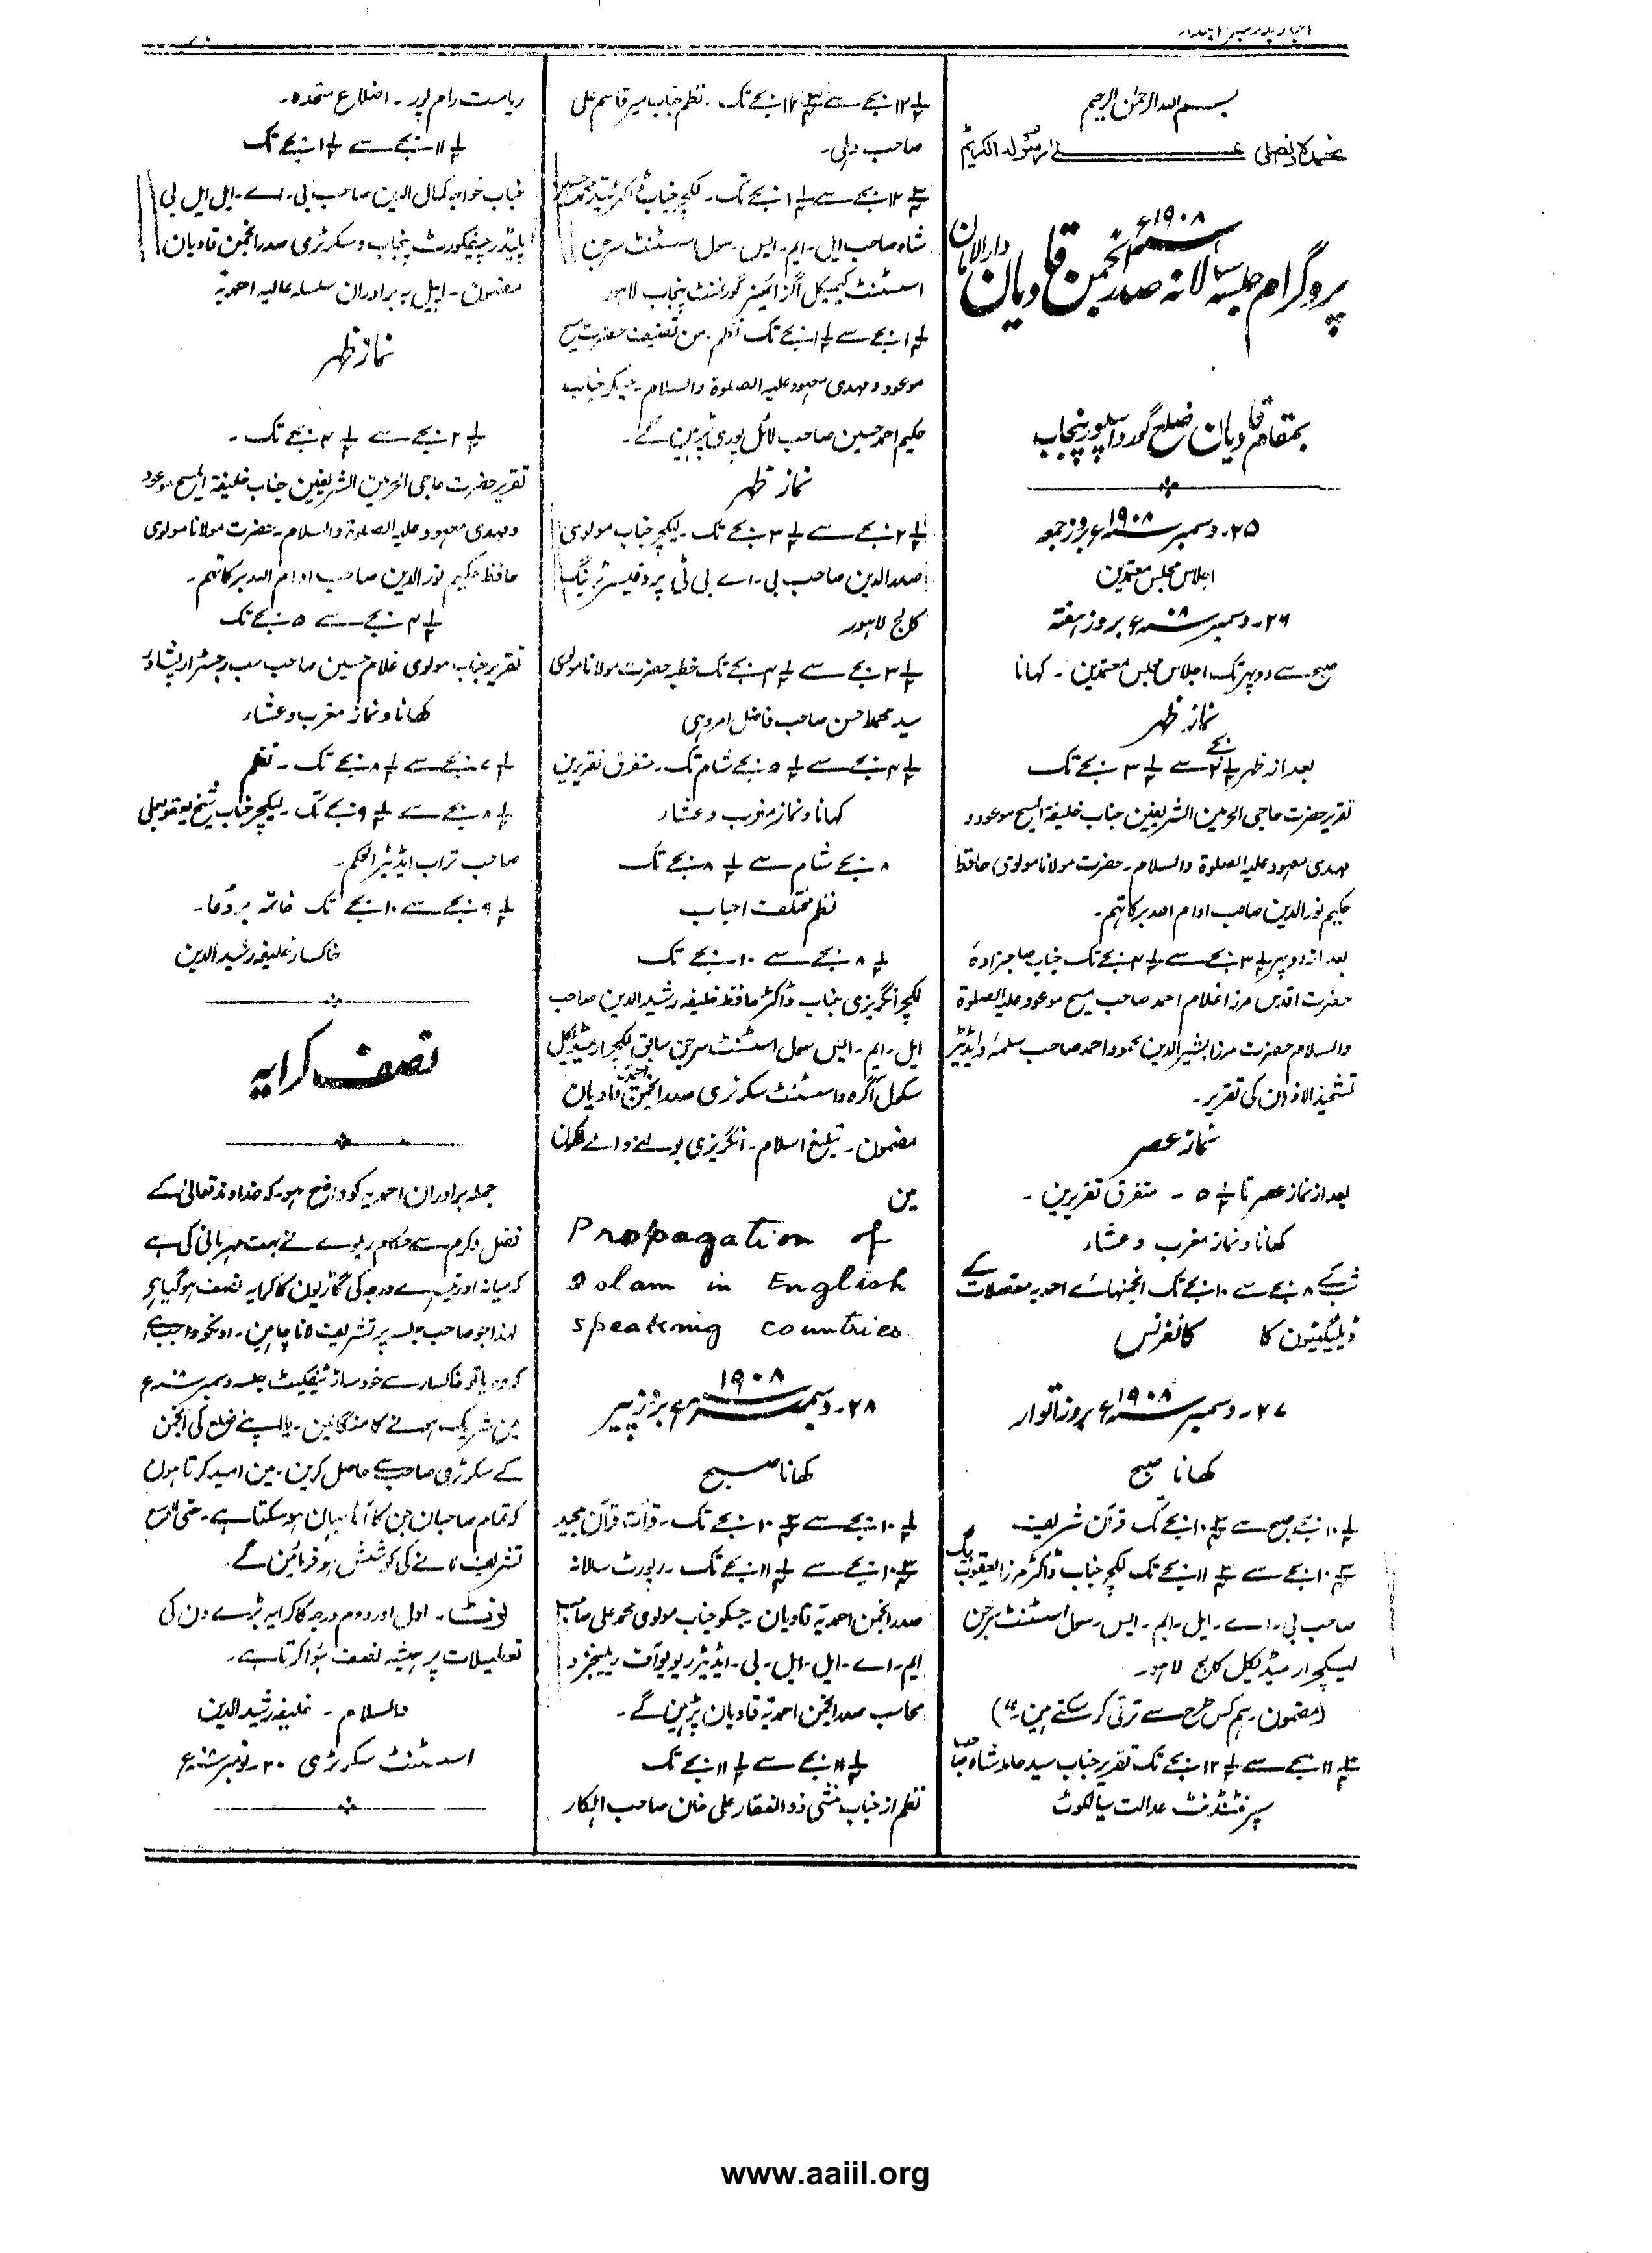 بسم اللہ الرحمٰن الرحیم
نحمدہ و نصلی علےٰ رسولہ الکریم
پروگرام جلسہ سالانہ صدر انجمن قادیان دارالامان ۱۹۰۸ء
بمقام قادیان ضلع گورداسپور پنجاب
۲۵۔ دسمبر ۱۹۰۸ء بروز جمعہ
اجلاس مجلس معتمدین
۲۶۔ دسمبر ۰۸ء بروز ہفتہ
صبح سے دوپہر تک اجلاس مجلس معتمدین۔ کہانا
نماز ظہر
بعد از ظہر ½۲ بجے سے ½۳ بجے تک
تقریر حضرت حاجی الحرمین الشریفین جناب خلیفۃ المسیح موعود و
مہدی معہود علیہ الصلوۃ والسلام۔ حضرت مولانا مولوی حافظ
حکیم نورالدین صاحب ادام اللہ برکاتہم۔
بعد از دوپہر ½۳ بجے سے ½۴ بجے تک جناب صاحبزادہ
حضرت اقدس مرزا غلام احمد صاحب مسیح موعود علیہ الصلوۃ
والسلام حضرت مرزا بشیر الدین محمود احمد صاحب سلمہٗ ایڈیٹر
تشحیذ الاذہان کی تقریر۔
نماز عصر
بعد از نماز عصر تا ½۵ ۔ متفرق تقریرین۔
کھانا و نماز مغرب و عشاء
شب کے ۸ بجے سے ۱۰ بجے تک انجمنہائے احمدیہ مفصلات کے
ڈیلیگیٹون کا کانفرنس
۲۷۔ دسمبر ۱۹۰۸ء بروز اتوار
کھانا صبح
½۱۰ بجے صبح سے ¾۱۰ بجے تک قرآن شریف
¾۱۰ بجے سے ¾۱۱ بجے تک لکچر جناب ڈاکٹر مرزا یعقوب بیگ
صاحب بی۔ اے۔ ایل۔ ایم۔ ایس۔ سول اسسٹنٹ سرجن
لیکچرار میڈیکل کالج لاہور
(مضمون۔ ہم کس طرح سے ترقی کر سکتے ہین۔")
¾۱۱ بجے سے ½۱۲ بجے تک تقریر جناب سید حامد شاہ صاحب
سپرنٹنڈنٹ عدالت سیالکوٹ
½۱۲ بجے سے ¾۱۲ بجے تک۔ نظم جناب میر قاسم علی
صاحب دہلی۔
¾۱۲ بجے سے ½۱ بجے تک۔ لکچر جناب ڈاکٹر سید محمد حسین
شاہ صاحب ایل۔ ایم۔ ایس۔ سول اسسٹنٹ سرجن
اسسٹنٹ کیمیکل اگزائمینر گورنمنٹ پنجاب لاہور
½۱ بجے سے ½۱ بجے تک نظم۔ من تصنیف حضرت مسیح
موعود و مہدی معہود علیہ الصلوۃ والسلام۔ جسکو جناب
حکیم احمد حسین صاحب لائل پوری پڑہین گے۔
نماز ظہر
½۲ بجے سے ½۳ بجے تک۔ لیکچر جناب مولوی
صدرالدین صاحب بی۔ اے بی ٹی پروفیسر ٹریننگ
کالج لاہور
½۳ بجے سے ½۴ بجے تک خطبہ حضرت مولانا مولوی
سید محمد احسن صاحب فاضل امروہی
½۴ بجے سے ½۵ بجے شام تک۔ متفرق تقریرین
کہانا و نماز مغرب و عشاء
۸ بجے شام سے ½۸ بجے تک
نظم مختلف احباب
½۸ بجے سے ۱۰ بجے تک
لکچر انگریزی جناب ڈاکٹر حافظ خلیفہ رشید الدین صاحب
ایل۔ ایم۔ ایس سول اسسٹنٹ سرجن سابق لکچرار میڈیکل
سکول آگرہ و اسسٹنٹ سکرٹری صدر انجمن احمدیہ قادیان
مضمون۔ تبلیغ اسلام۔ انگریزی بولنے والے ملکون
مین
Propagation of
Islam in English
speaking countries
۲۸۔ دسمبر ۱۹۰۸ء بروز پیر
کھانا صبح
½۱۰ بجے سے ¾۱۰ بجے تک۔ قرأت قرآن مجید
¾۱۰ بجے سے ½۱۱ بجے تک۔ رپورٹ سالانہ
صدر انجمن احمدیہ قادیان۔ جسکو جناب مولوی محمد علی صاحب
ایم۔ اے۔ ایل۔ ایل۔ بی۔ ایڈیٹر ریویو آف ریلیجنز و
محاسب صدر انجمن احمدیہ قادیان پڑہین گے۔
½۱۱ بجے سے ½۱۱ بجے تک
نظم از جناب منشی ذوالفقار علی خان صاحب اہلکار
ریاست رام پور۔ اضلاع متحدہ۔
½۱۱ بجے سے ½۱ بجے تک
جناب خواجہ کمال الدین صاحب بی۔ اے۔ ایل ایل بی
پلیڈر چیفکورٹ پنجاب و سکرٹری صدر انجمن قادیان
مضمون۔ اپیل بہ برادران سلسلہ عالیہ احمدیہ
نماز ظہر
½۲ بجے سے ½۴ بجے تک۔
تقریر حضرت حاجی الحرمین الشریفین جناب خلیفۃ المسیح موعود
و مہدی معہود علیہ الصلوۃ والسلام۔ حضرت مولانا مولوی
حافظ حکیم نورالدین صاحب ادام اللہ برکاتہم۔
½۴ بجے سے ۵ بجے تک
تقریر جناب مولوی غلام حسین صاحب سب رجسٹرار پشاور
کھانا و نماز مغرب و عشاء
½۷ بجے سے ½۸ بجے تک۔ نظم
½۸ بجے سے ½۹ بجے تک۔ لیکچر جناب شیخ یعقوب علی
صاحب تراب ایڈیٹر الحکم۔
½۹ بجے سے ۱۰ بجے تک خاتمہ بر دُعا۔
خاکسار خلیفہ رشید الدین
نصف کرایہ
جملہ برادران احمدیہ کو واضح ہو۔ کہ خداوند تعالیٰ کے
فضل و کرم سے حکام ریلوے نے بہت مہربانی کی ہے
کہ میانہ اور تیسرے درجہ کی گاڑیون کا کرایہ نصف ہو گیا ہے
لہذا جو صاحب جلسہ پر تشریف لانا چاہین۔ اونکو واجب ہے
کہ وہ یا تو خاکسار سے خود سارٹیفکیٹ جلسہ دسمبر ۰۸ء
مین شریک ہونے کا منگالین۔ یا اپنے ضلع کی انجمن
کے سکرٹری صاحب سے حاصل کرین۔ مین امید کرتا ہون
کہ تمام صاحبان جن کا آنا یہان ہو سکتا ہے۔ حتی الوسع
تشریف لانے کی کوشش فرمائین گے۔
نوٹ۔ اول اور دوم درجہ کا کرایہ بڑے دن کی
تعطیلات پر ہمیشہ نصف ہؤا کرتا ہے۔
والسلام۔ خلیفہ رشید الدین
اسسٹنٹ سکرٹری ۳۰۔ نومبر ۰۸ء
www.aaiil.org